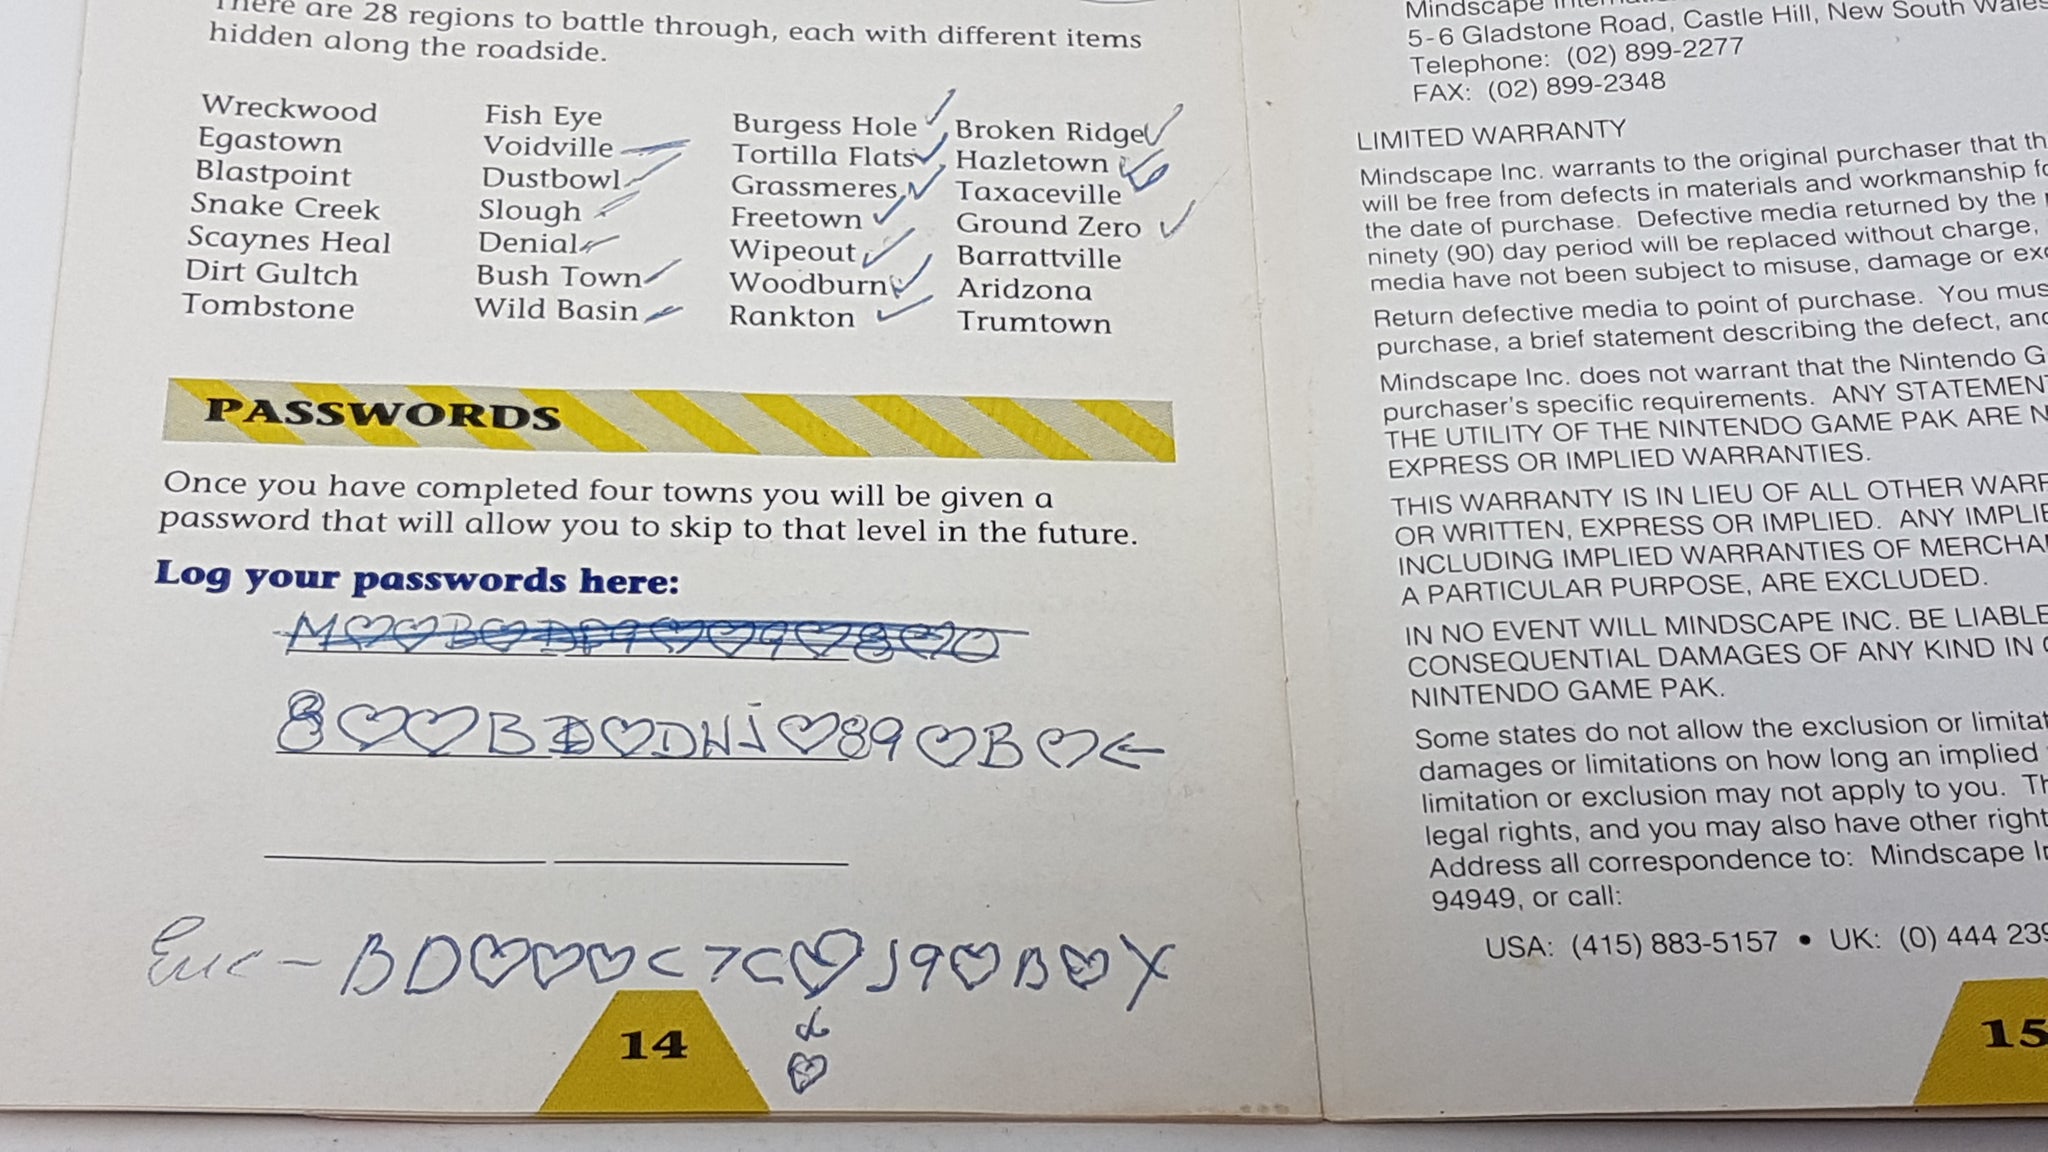 There are 28 regions to battle through, each with different items
hidden along the roadside.
Wreckwood
Egastown
Blastpoint
Snake Creek
Scaynes Heal
Dirt Gultch
Tombstone
Fish Eye
Voidville
Dustbowl
Slough
Denial
Bush Town
Wild Basin
Burgess Hole
Tortilla Flats
Grassmeres
Freetown
Wipeout
Woodburn
Rankton
Broken Ridge
Hazletown
Taxaceville
Ground Zero
Barrattville
Aridzona
Trumtown
PASSWORDS
Once you have completed four towns you will be given a
password that will allow you to skip to that level in the future.
Log your passwords here:
8♡♡B D♡DNJ♡89♡B♡←
BD♡♡♡<7C♡J9♡B♡X
14
Mindscape
5-6 Gladstone Road, Castle Hill, New South Wales
Telephone: (02) 899-2277
FAX: (02) 899-2348
LIMITED WARRANTY
Mindscape Inc. warrants to the original purchaser that
will be free from defects in materials and workmanship
the date of purchase. Defective media returned by the
ninety (90) day period will be replaced without charge,
media have not been subject to misuse, damage or
Return defective media to point of purchase. You
purchase, a brief statement describing the defect,
Mindscape Inc. does not warrant that the Nintendo
purchaser's specific requirements. ANY
THE UTILITY OF THE NINTENDO GAME PAK ARE
EXPRESS OR IMPLIED WARRANTIES.
THIS WARRANTY IS IN LIEU OF ALL OTHER
OR WRITTEN, EXPRESS OR IMPLIED. ANY
INCLUDING IMPLIED WARRANTIES OF
A PARTICULAR PURPOSE, ARE EXCLUDED.
IN NO EVENT WILL MINDSCAPE INC. BE LIABLE
CONSEQUENTIAL DAMAGES OF ANY KIND IN
NINTENDO GAME PAK.
Some states do not allow the exclusion or
damages or limitations on how long an implied
limitation or exclusion may not apply to you.
legal rights, and you may also have other
Address all correspondence to: Mindscape
94949, or call:
USA: (415) 883-5157 • UK: (0) 444 239
15